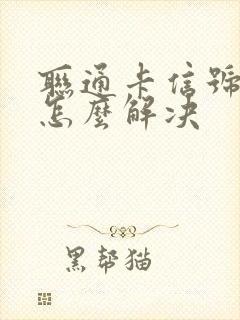 聯通卡信號
怎麼解决
黑帮猫